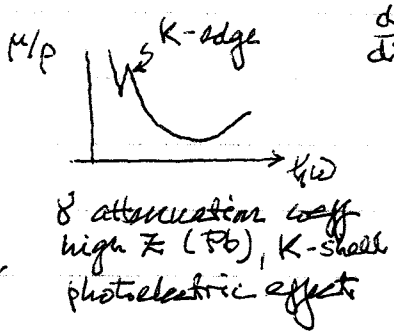 K-edge
μ/ρ
d
di
ħω
γ attenuation coeff
high Z (Pb), K-shell
photoelectric effect